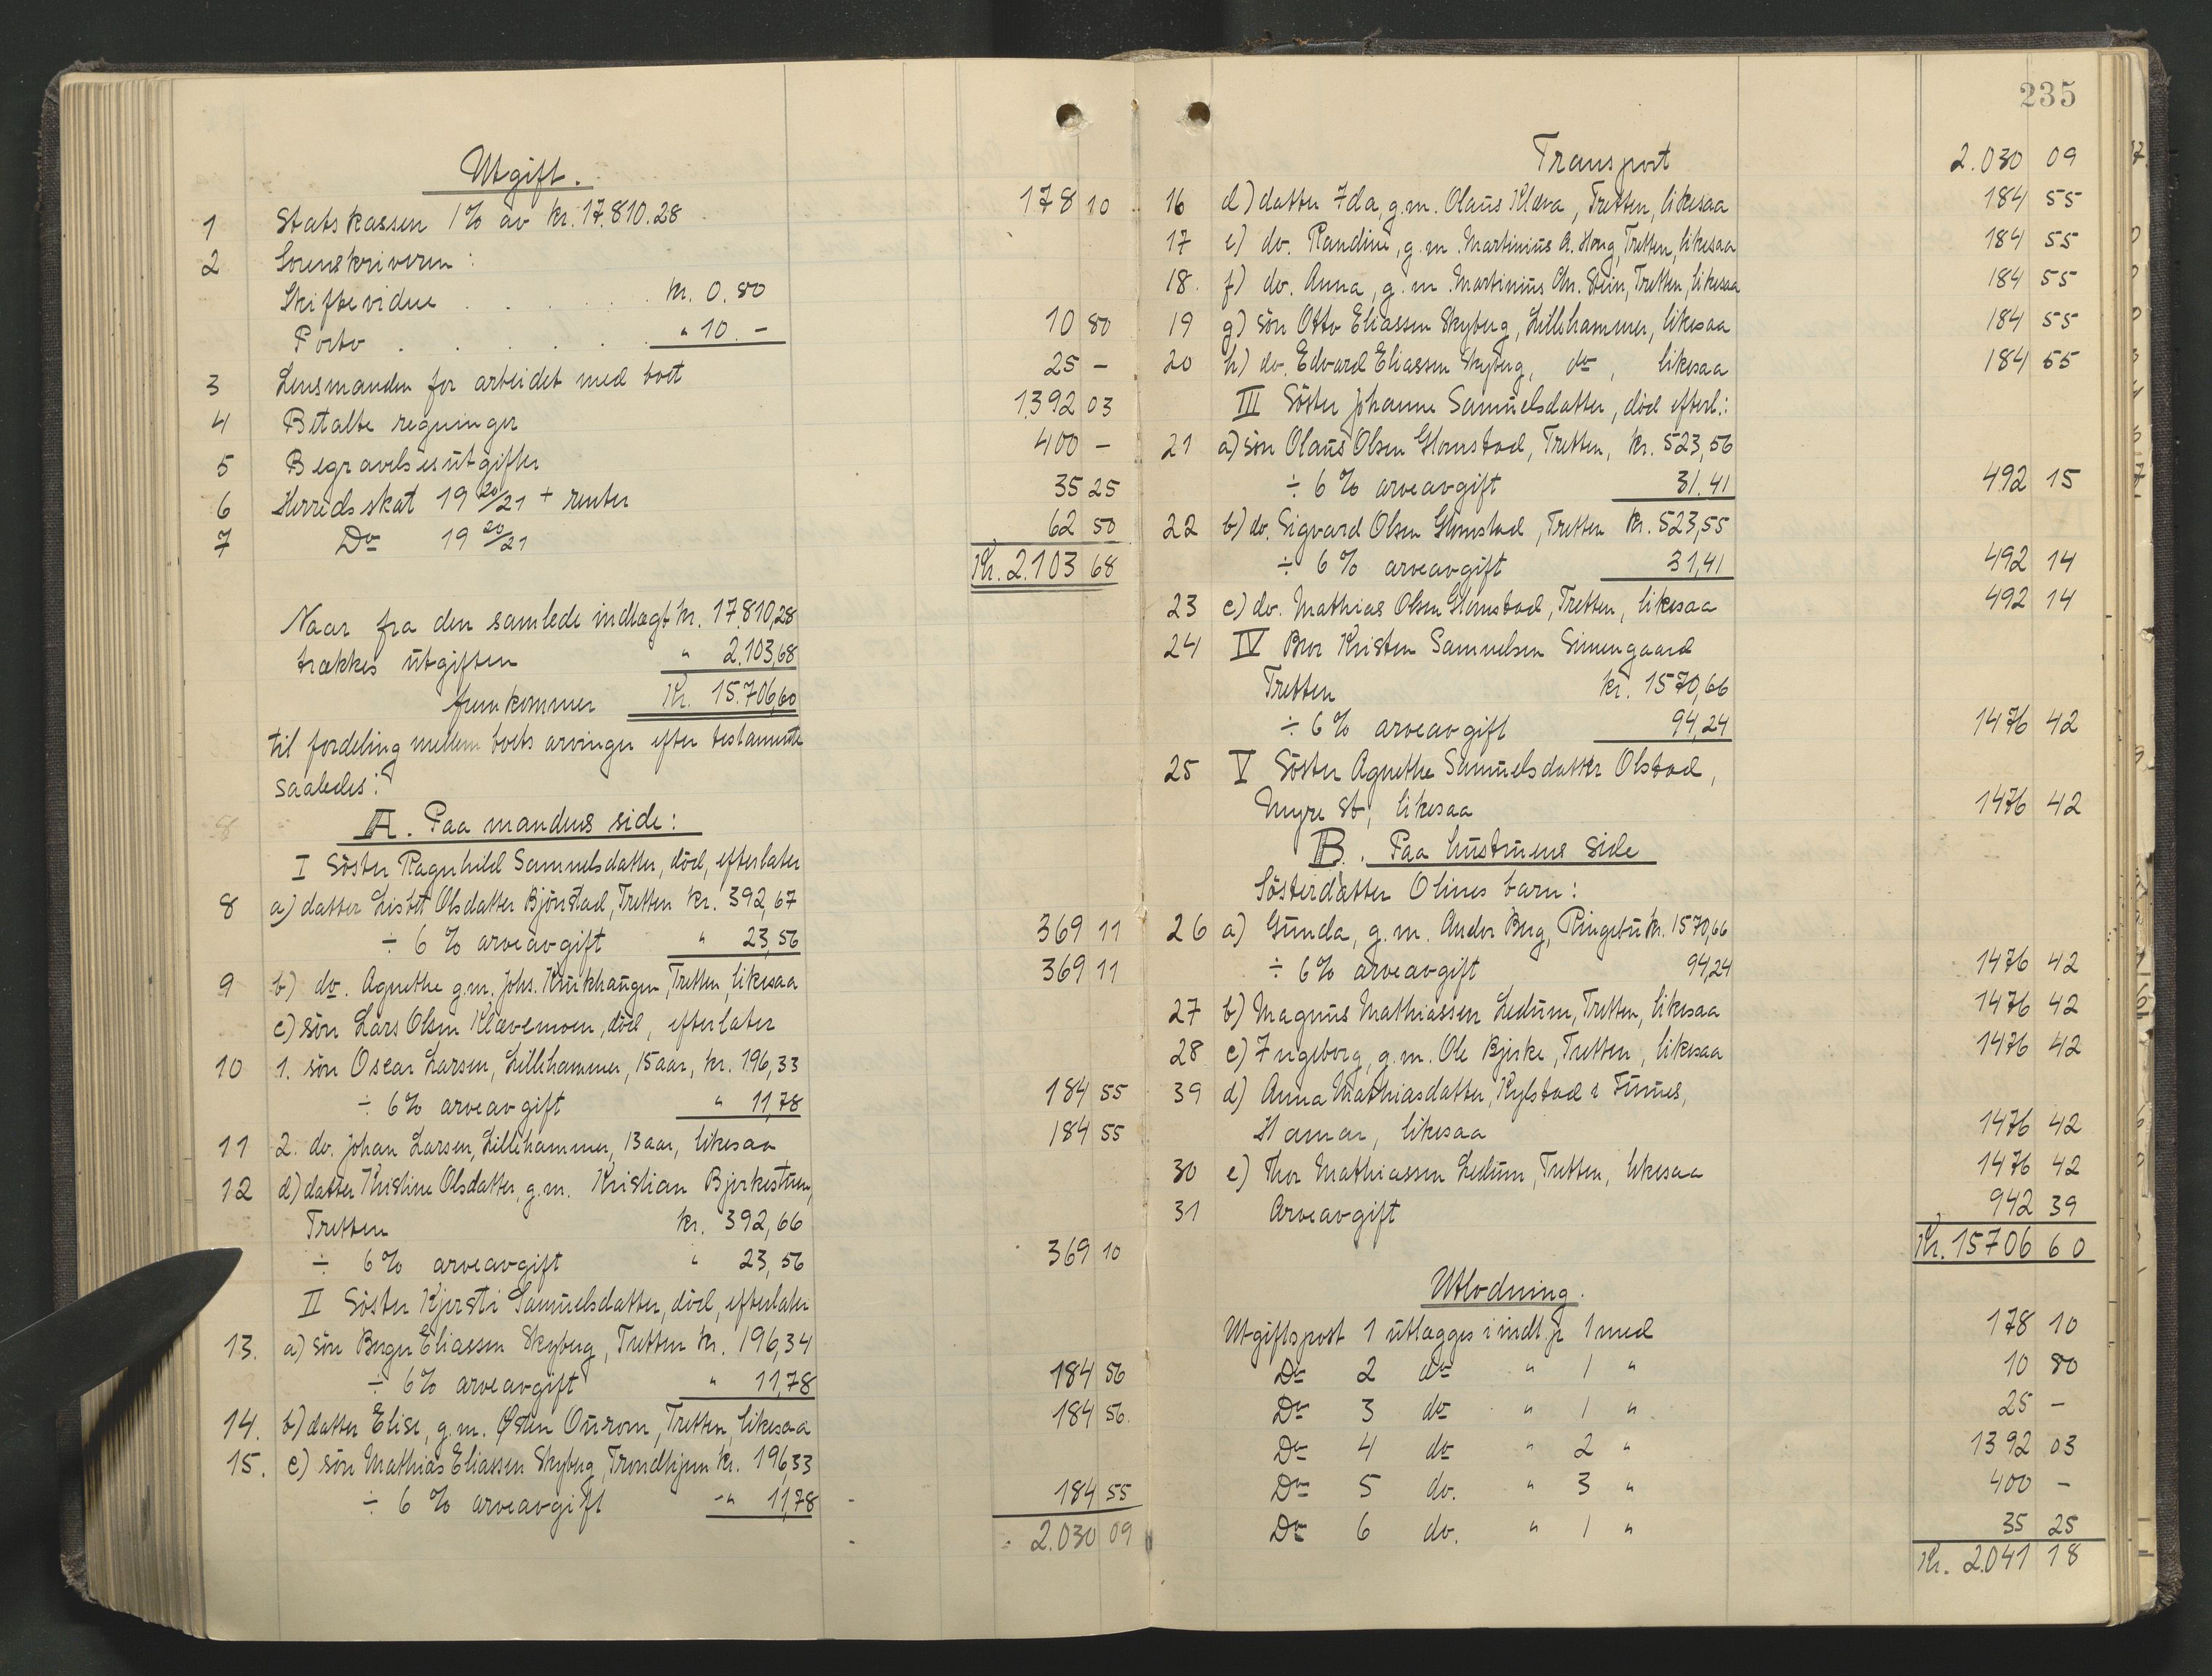 Utgift.
1 Statskassen 1% av kr. 17.810.28 178 10
2 Sorenskriveren:
Skiftevidne . . . . kr. 0.80
Porto . . . . . . " 10.- 10 80
3 Lensmanden for arbeidet med boet 25 -
4 Betalte regninger 1392 03
5 Begravelsesutgifter 400 -
6 Herredsskat 19 20/21 + renter 35 25
7 Do 19 20/21 62 50
Kr. 2.103 68
Naar fra den samlede indtægt kr. 17.810,28
trækkes utgiften " 2.103,68
fremkommer Kr. 15.706,60
til fordeling mellem boets arvinger efter testamente
saaledes:
A. Paa mandens side:
I Söster Ragnhild Samuelsdatter, död, efterlater
8 a) datter Lisbet Olsdatter Björstad, Tretten kr. 392,67
÷ 6% arveavgift " 23,56 369 11
9 b) do. Agnethe g.m. Johs. Krukhaugen, Tretten, likesaa 369 11
c) sön Lars Olsen Klævemoen, död, efterlater
10 1. sön Oscar Larsen, Lillehammer, 15 aar, kr. 196,33
÷ 6% arveavgift " 11,78 184 55
11 2. do. Johan Larsen, Lillehammer, 13 aar, likesaa 184 55
12 d) datter Kristine Olsdatter, g.m. Kristian Bjerkestuen,
Tretten kr. 392,66
÷ 6% arveavgift " 23,56 369 10
II Söster Kjersti Samuelsdatter, död, efterlater
13. a) sön Berger Eliassen Skyberg, Tretten kr. 196,34
÷ 6% arveavgift " 11,78 184 56
14. b) datter Elise, g.m. Østen Ourom, Tretten, likesaa 184 56.
15. c) sön Mathias Eliassen Skyberg, Trondhjem kr. 196,33
÷ 6% arveavgift " 11,78 184 55
2.030 09
235
Transport 2.030 09
16 d) datter Ida, g.m. Olaus Klæva, Tretten, likesaa 184 55
17 e) do. Randine, g.m. Martinius A. Houg, Tretten, likesaa 184 55
18. f) do. Anna, g.m. Martinius Chr. Stein, Tretten, likesaa 184 55
19 g) sön Otto Eliassen Skyberg, Lillehammer, likesaa 184 55
20 h) do. Edvard Eliassen Skyberg, do, likesaa 184 55
III Söster Johanne Samuelsdatter, död efterl.:
21 a) sön Olaus Olsen Glomstad, Tretten, kr. 523,56
÷ 6% arveavgift 31.41 492 15
22 b) do. Sigvard Olsen Glomstad, Tretten kr. 523,55
÷ 6% arveavgift 31,41 492 14
23 c) do. Mathias Olsen Glomstad, Tretten, likesaa 492 14
24 IV Bror Kristen Samuelsen Simengaard
Tretten kr. 1570,66
÷ 6% arveavgift 94,24 1476 42
25 V Söster Agnethe Samuelsdatter Olstad,
Myre st, likesaa 1476 42
B. Paa hustruens side
Sösterdatter Olines barn:
26 a) Gunda, g.m. Andor Berg, Ringebu kr. 1570,66
÷ 6% arveavgift 94,24 1476 42
27 b) Magnus Mathiassen Ledum, Tretten, likesaa 1476 42
28 c) Ingeborg, g.m. Ole Bjerke, Tretten, likesaa 1476 42
39 d) Anna Mathiasdatter, Kylstad i Furnes,
Hamar, likesaa 1476 42
30 e) Thor Mathiassen Ledum, Tretten, likesaa 1476 42
31 Arveavgift 942 39
Kr. 15706 60
Utlodning.
Utgiftspost 1 utlægges i indt. p. 1 med 178 10
Do 2 do " 1 " 10 80
Do 3 do " 1 " 25 -
Do 4 do " 2 " 1392 03
Do 5 do. " 3 " 400 -
Do 6 do. " 1 " 35 25
Kr. 2.041 18